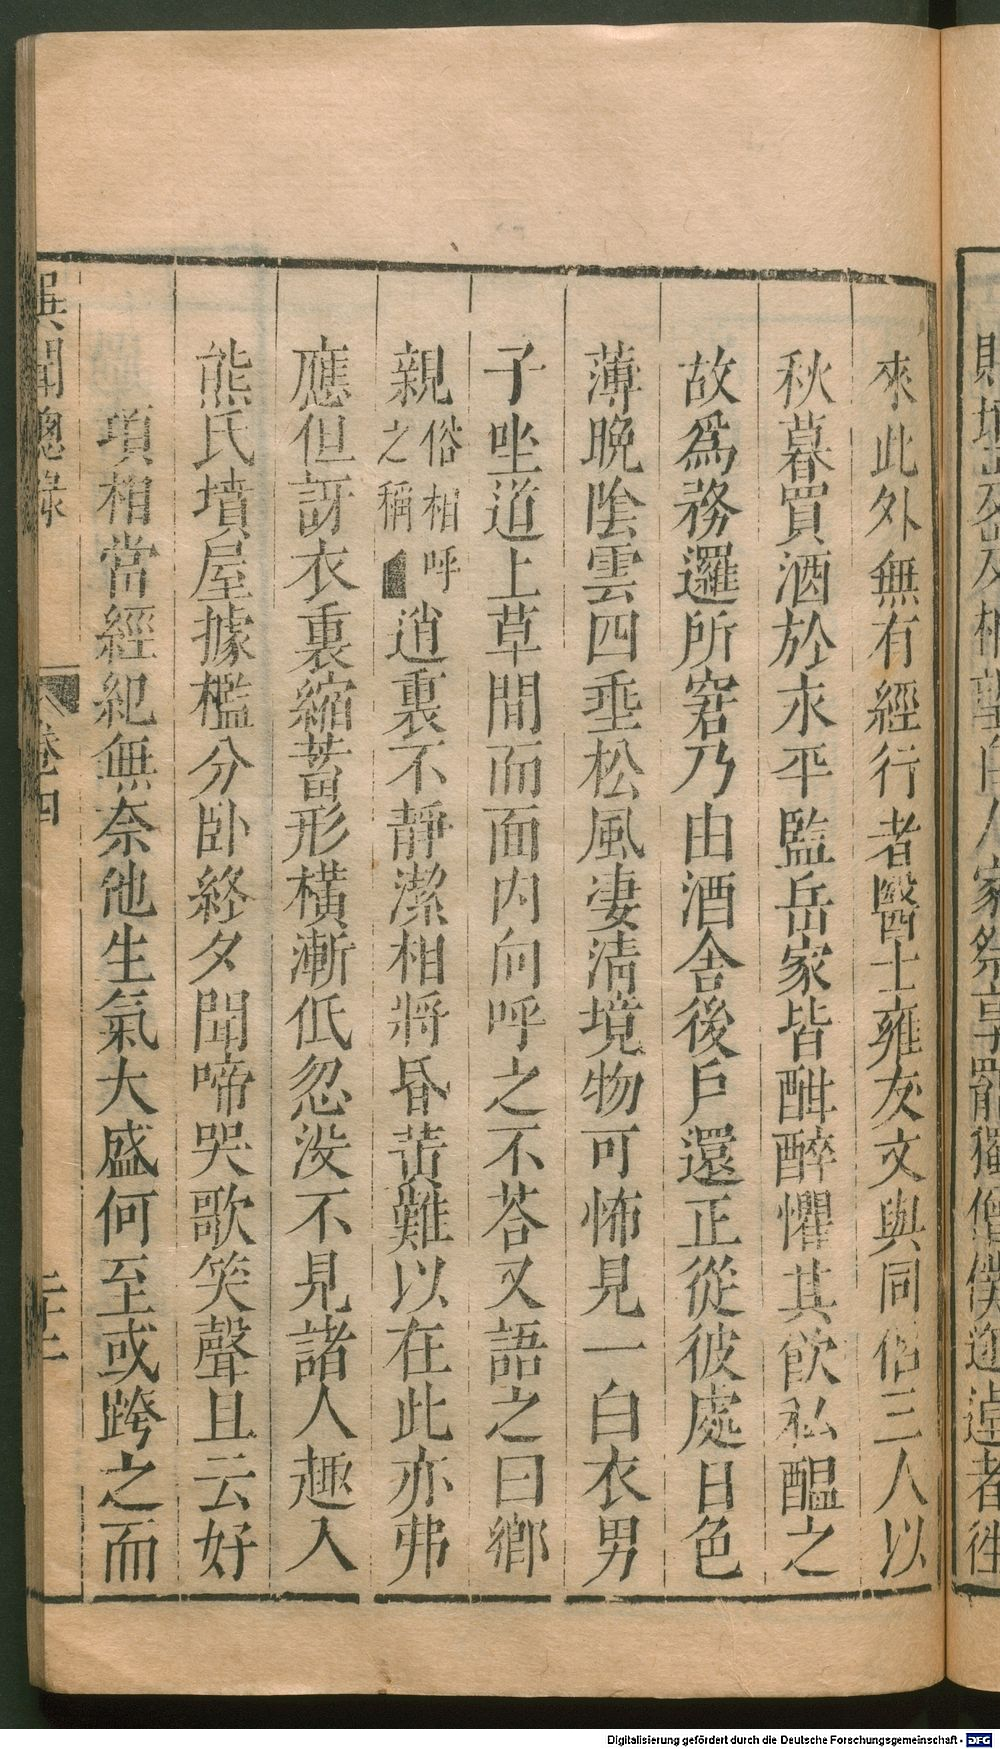 來此外無有經行者醫士雍友文與同侶三人以
秋暮買酒於永平監岳家皆酣醉懼其飲私醞之
故爲務邏所窘乃由酒舍後戶還正從彼處日色
薄晚陰雲四垂松風凄清境物可怖見一白衣男
子坐道上草間而面内向呼之不荅又語之曰鄉
親俗相呼之稱道裏不靜潔相將昏黃難以在此亦弗
應但訝衣裏縮蓄形橫漸低忽没不見諸人趣入
熊氏墳屋據檻分卧終夕聞啼哭歌笑聲且云好
項相當經紀無奈他生氣大盛何至或跨之而
異聞總錄
卷四
二十二
Digitalisierung gefördert durch die Deutsche Forschungsgemeinschaft - DFG